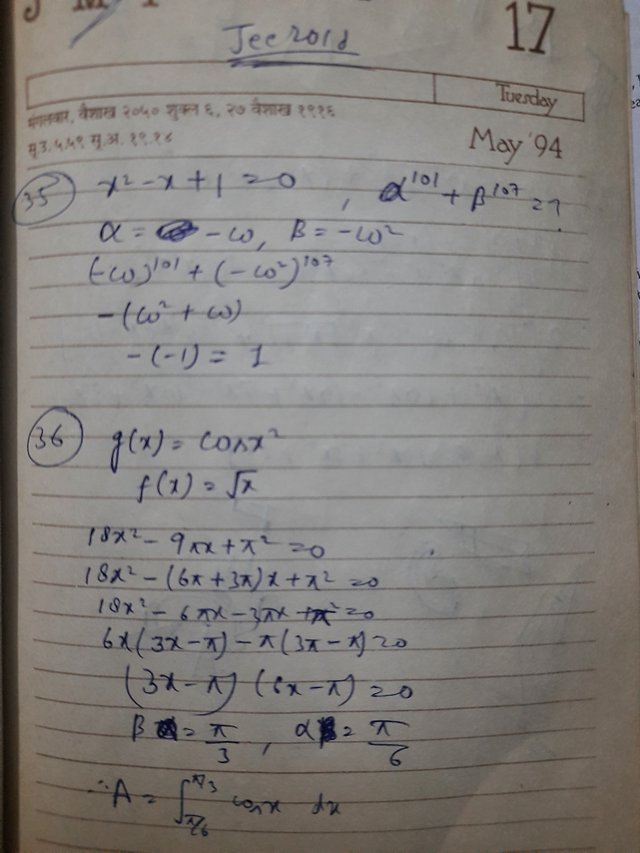 Jee 2018
17
Tuesday
मंगलवार, वैशाख २०५० शुक्ल ६, २७ वैशाख १९१६
सू.उ. ५.५९ सू.अ. १९.१८
May '94
35 x² - x + 1 = 0, α¹⁰¹ + β¹⁰⁷ = ?
α = -ω, β = -ω²
(-ω)¹⁰¹ + (-ω²)¹⁰⁷
-(ω² + ω)
-(-1) = 1
36 g(x) = cosx²
f(x) = √x
18x² - 9πx + π² = 0
18x² - (6π + 3π)x + π² = 0
18x² - 6πx - 3πx + π² = 0
6x(3x - π) - π(3x - π) = 0
(3x - π) (6x - π) = 0
β = π/3, α = π/6
∴ A = ∫_{π/6}^{π/3} cosx dx